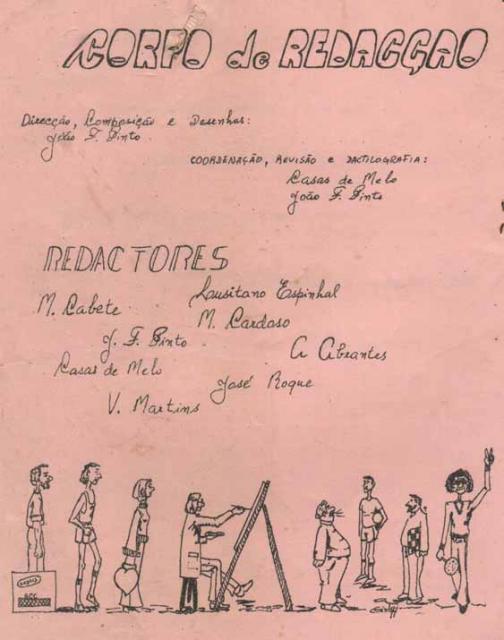 CORPO de REDACÇÃO
Direcção, Composição e Desenhos:
João F. Pinto.
COORDENAÇÃO, REVISÃO e DACTILOGRAFIA:
Casas de Melo
João F. Pinto
REDACTORES
M. Cabete
Lusitano Espinhal
M. Cardoso
J. F. Pinto
A Abrantes
Casas de Melo
José Roque
V. Martins